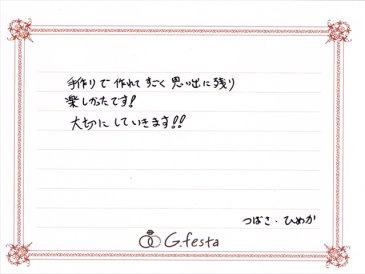 手作りで作れてすごく思い出に残り
楽しかたです!
大切にしていきます!!
つばさ・ひめか
G.festa